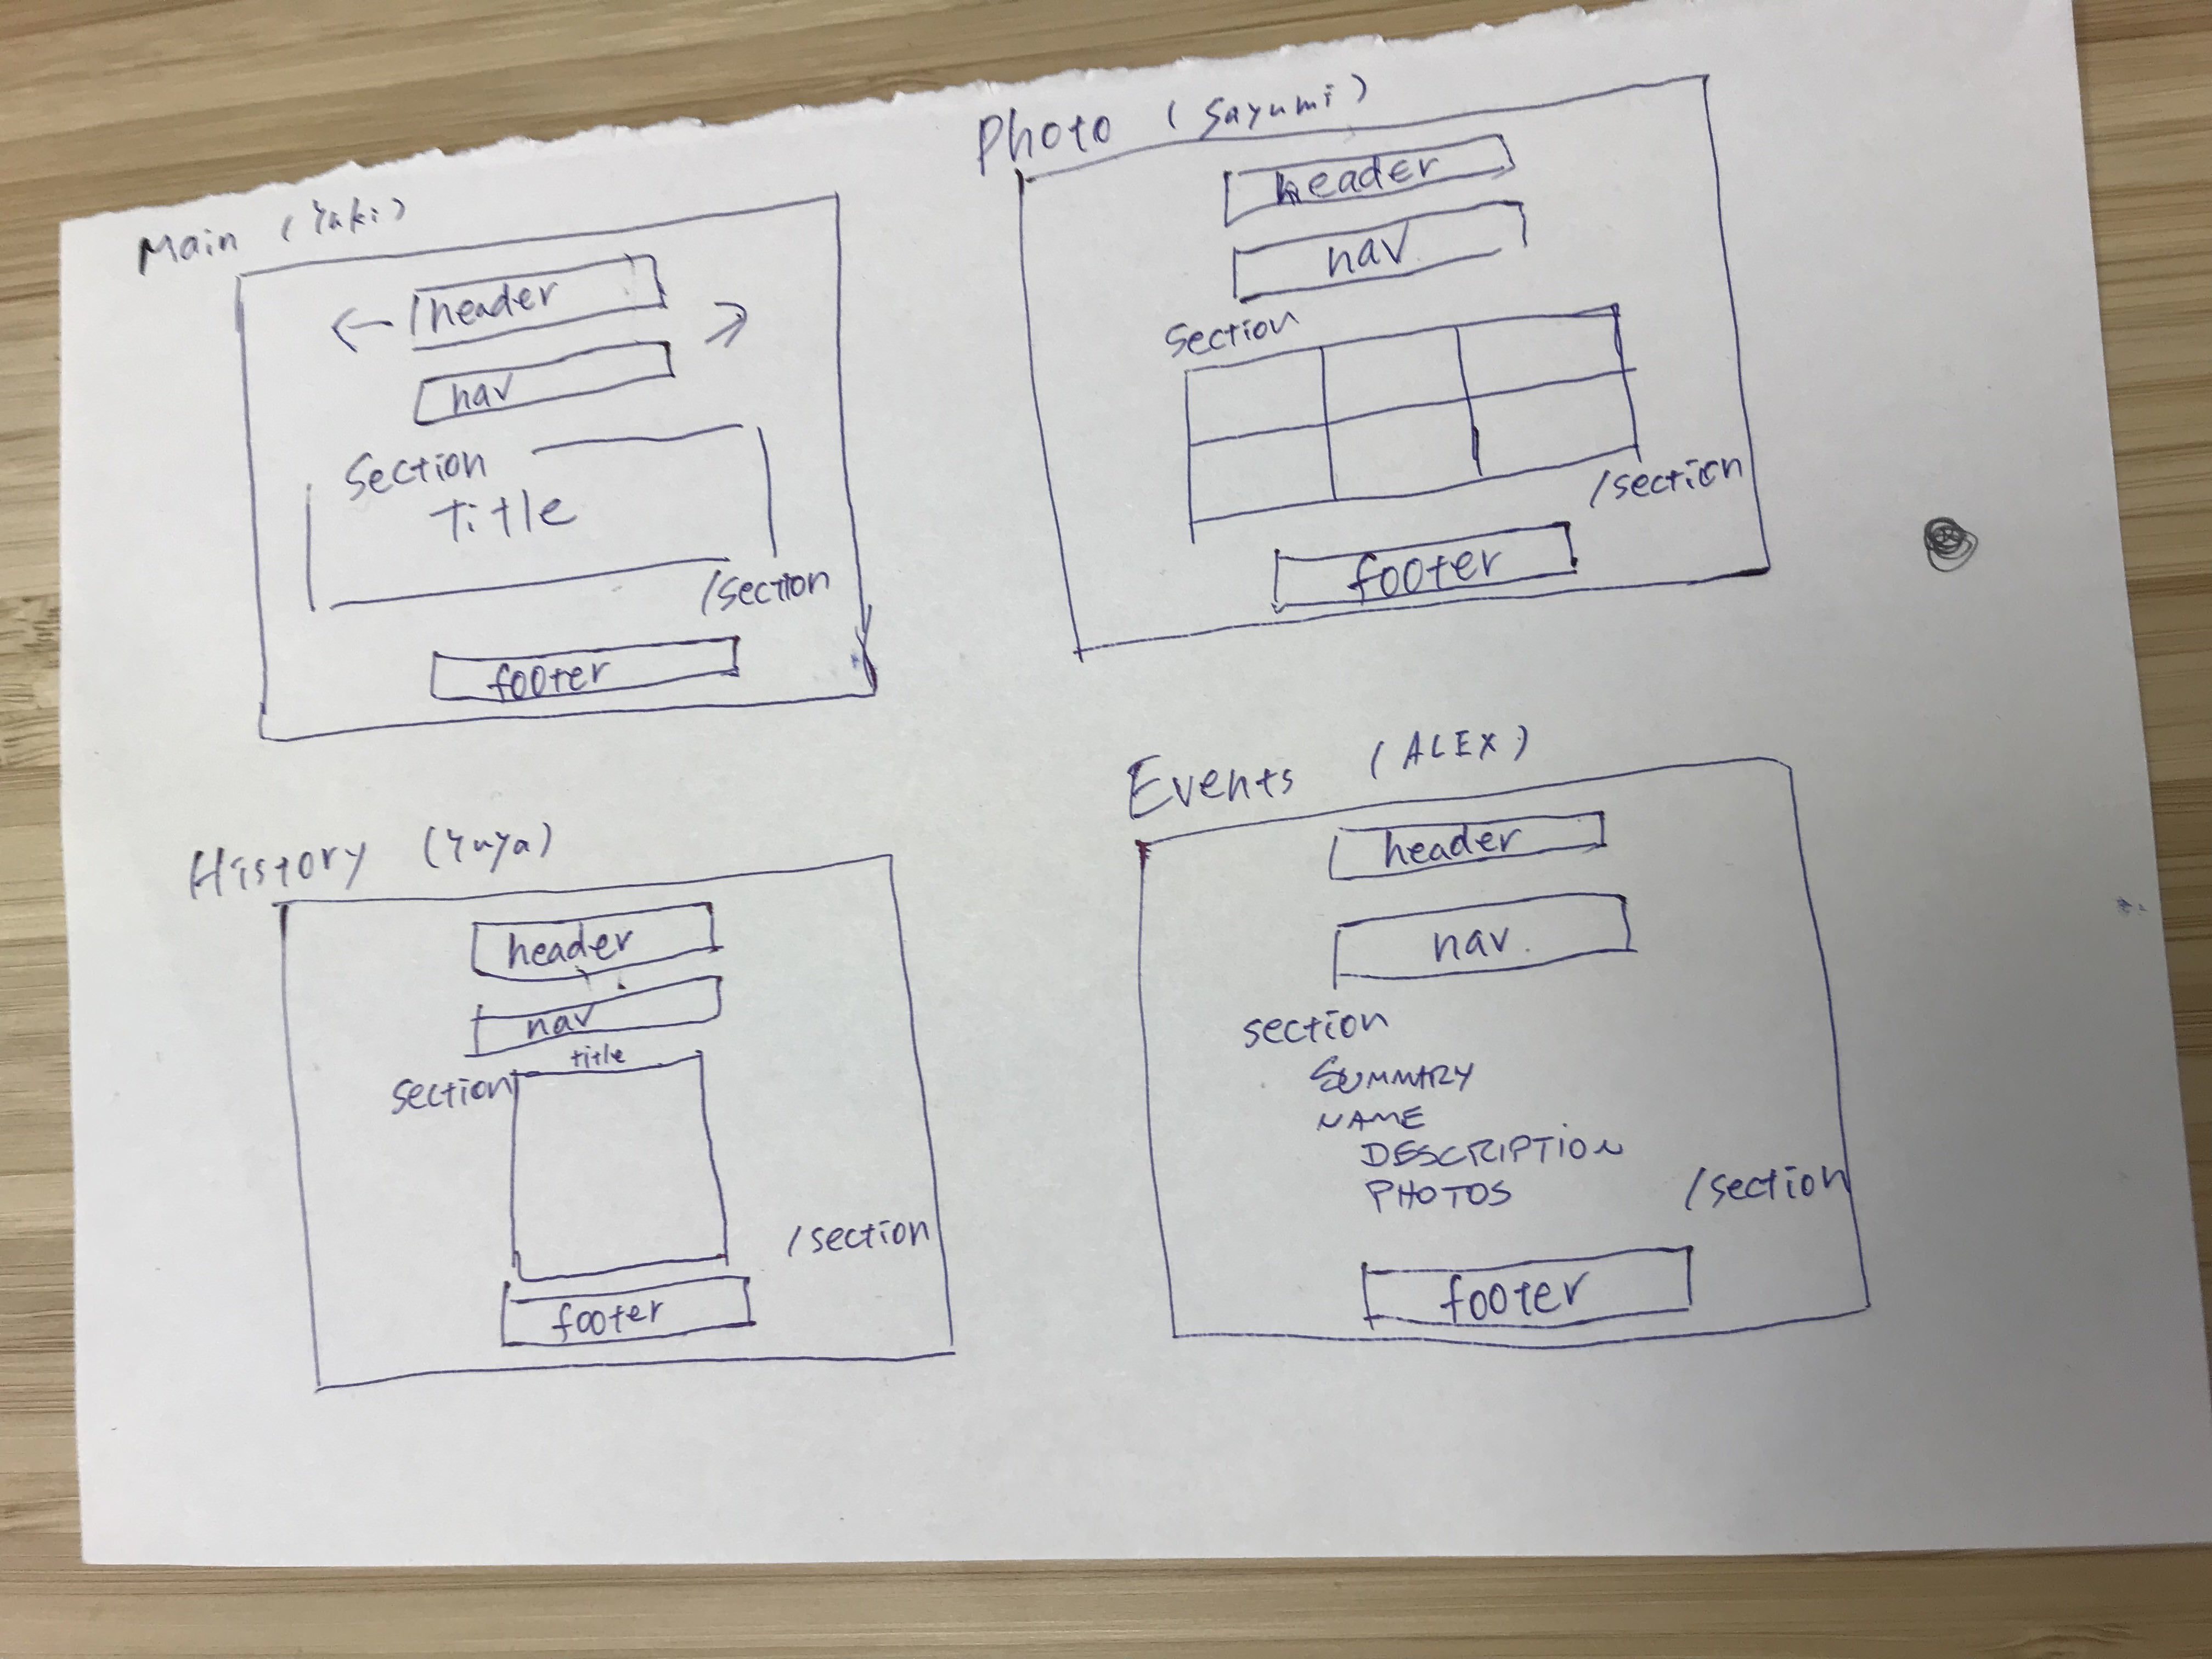 Main (Yuki)
header
nav
Section
title
/section
footer
Photo (Sayumi)
header
nav
Section
/section
footer
History (Yuya)
header
nav
title
section
/section
footer
Events (ALEX)
header
nav
section
SUMMARY
NAME
DESCRIPTION
PHOTOS
/section
footer